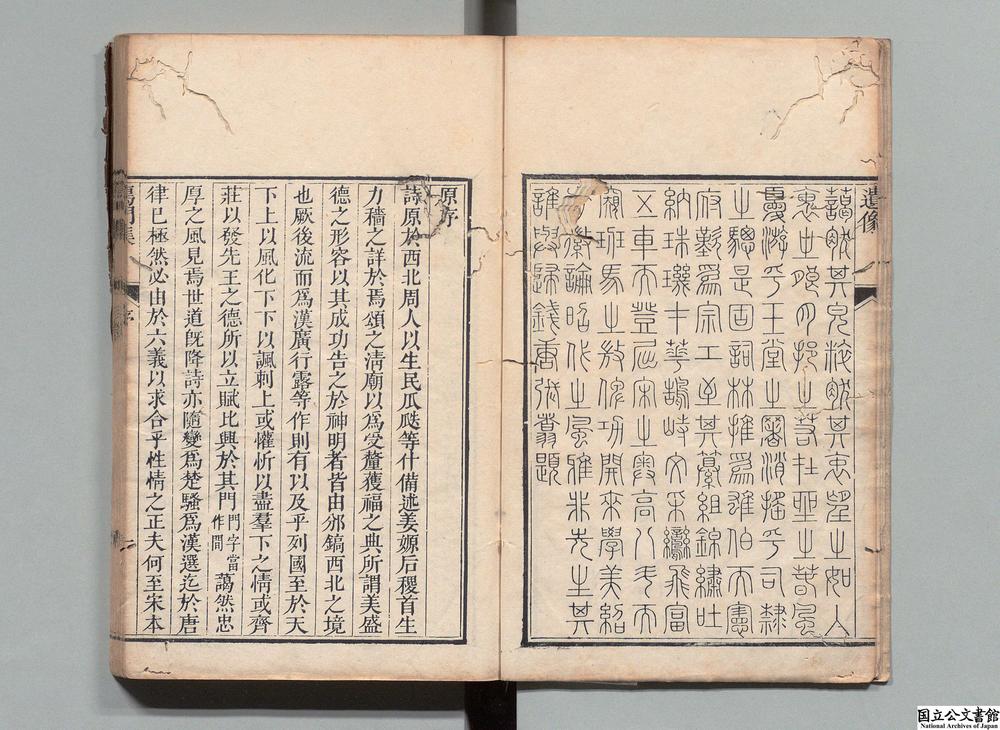 遺像
藹然其皃粹然其衷望之如人
游乎玉堂之署消搖乎司隸
之驄是固詞林推爲雄伯而憲
府歎爲宗工至其纂組錦繡吐
納珠璣十華鵠峙文采鸞飛富
五車而登屈宋之高八斗而
班馬之脩功開來學美紹
徽論昭代之風雅非先生其
誰與歸錢唐題
原序
詩原於西北周人以生民瓜瓞等什備述姜嫄后稷首生
力穡之詳於焉頌之清廟以爲受釐獲福之典所謂美盛
德之形容以其成功告之於神明者皆由邠鎬西北之境
也厥後流而爲漢廣行露等作則有以及乎列國至於天
下上以風化下下以諷刺上或懽忻以盡羣下之情或齊
莊以發先王之德所以立賦比興於其門門字當作間藹然忠
厚之風見焉世道旣降詩亦隨變爲楚騷爲漢選迄於唐
律已極然必由於六義以求合乎性情之正夫何至宋本
鴈門集
序
一
国立公文書館
National Archives of Japan